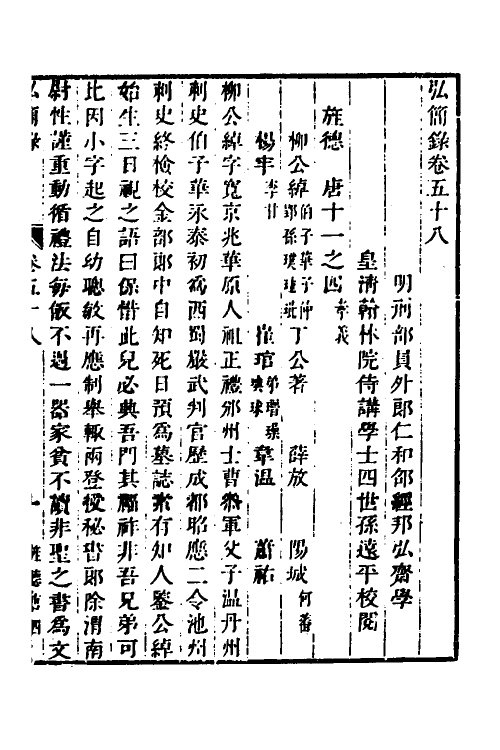 弘簡錄卷五十八
明刑部員外郎仁和邵經邦弘齋學
皇清翰林院侍講學士四世孫遠平校閱
旌德 唐十一之四 孝義
柳公綽 伯子華 子仲郢 孫璞 珪 璧 玭 丁公著 薛放 陽城 何蕃
楊牢 李甘 崔琯 弟珙 璪 璵 球 韋溫 蕭祐
柳公綽字寬京兆華原人祖正禮邠州士曹參軍父子温丹州
刺史伯子華永泰初爲西蜀嚴武判官歷成都昭應二令池州
刺史終檢校金部郎中自知死日預爲墓誌常有知人鑒公綽
始生三日視之語曰保惜此兒必興吾門其福祚非吾兄弟可
比因小字起之自幼聰敏再應制舉輒兩登授秘書郎除渭南
尉性謹重動循禮法每飯不過一器家貧不讀非聖之書爲文
弘簡錄 卷五十八 一 旌德 唐四